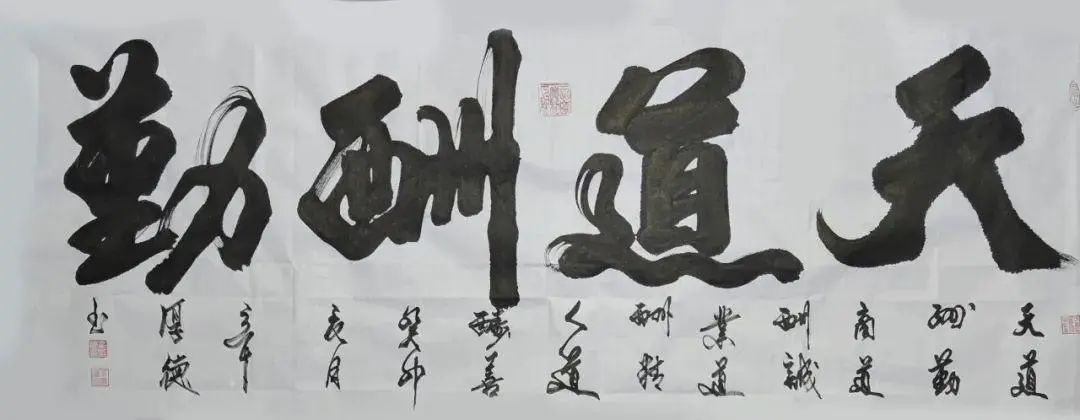 天道酬勤
天道
酬勤
商道
酬誠
業道
酬精
人道
酬善
癸卯
月
厚德
玉